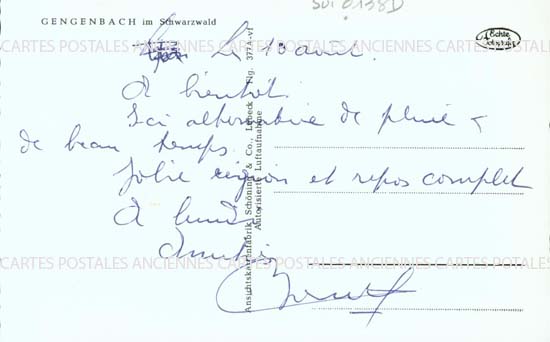 SUI 0138D
GENGENBACH im Schwarzwald
Echte
Le 10 avril
CARTES POSTALES ANCIENNES CARTES POSTALES ANCIENNES CARTES POSTALES ANCIENNES
A bientôt.
Ici alternative de pluie &
de beau temps.
Jolie région et repos complet
A lundi
Amitiés
CARTES POSTALES ANCIENNES CARTES POSTALES ANCIENNES CARTES POSTALES ANCIENNES
Ansichtskartenfabrik Schöning & Co., Lübeck
Autorisierte Luftaufnahme